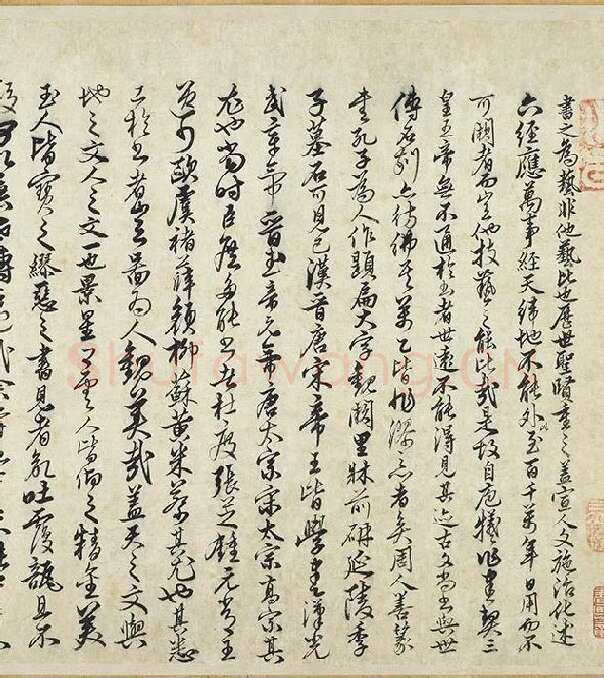 書之為藝非他藝比也歷世聖賢重之蓋宣人文施治化述
六經應萬事經天緯地不能外以至百千萬年日用而不
可闕者而豈他技藝之能比哉是故自庖犧作書契三
皇五帝無不通於書者世遠不能得見其迹古文尚書與世
傳石刻亦彷彿其萬乙皆非深者矣周人善篆
書孔子為人作題扁大字觀闕里牀前碑延陵季
子墓石可見已漢晉唐宋帝王皆學書漢光
武章帝晉武帝元帝唐太宗宋太宗高宗其
尤也當時臣庶多能書者杜度張芝鍾元常王
逸少歐虞褚薛顏柳蘇黃米蔡其尤也其悉
於書者豈為人觀美哉蓋天之文與
地之文人之文一也景星雲人皆仰之精金美
玉人皆寶之繆惡之書見者欲吐覆瓿且不